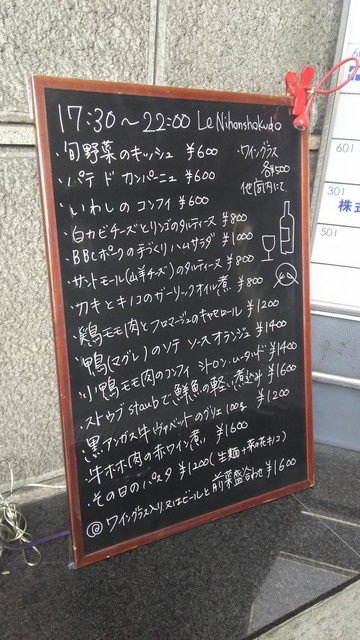 17:30～22:00 Le Nihonshukudo
・旬野菜のキッシュ ¥600
・ワイングラス
各¥500
・パテ ド カンパーニュ ¥600
・いわしのコンフィ ¥600
・白カビチーズとリンゴのタルティーヌ ¥800
・BBCポークの手づくりハムサラダ ¥1000
・サントモール(山羊チーズ)のタルティーヌ ¥800
・カキとキノコのガーリックオイル煮 ¥800
・鶏モモ肉とフロマージュのキャセロール ¥1200
・鴨(マグレ)のソテ ソースオランジュ ¥1400
・小鴨モモ肉のコンフィ シトロン ¥1400
・ストウブ staubで鮮魚の軽い煮込み ¥1600
・黒アンガス牛 のグリエ 100g ¥1200
・牛ホホ肉の赤ワイン煮 ¥1600
・その日のパスタ ¥1200(生麺+菜の花キノコ)
@ワイングラス入り又はビールと前菜盛合わせ ¥1600
601
301
株式
501